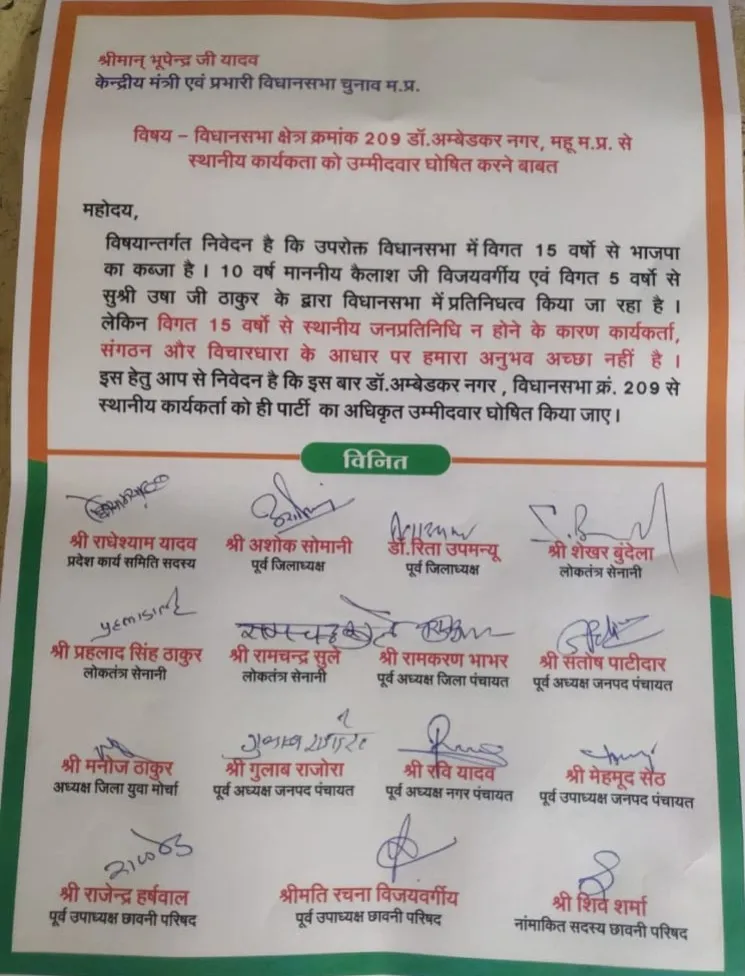 श्रीमान् भूपेन्द्र जी यादव
केन्द्रीय मंत्री एवं प्रभारी विधानसभा चुनाव म.प्र.
विषय – विधानसभा क्षेत्र क्रमांक 209 डॉ.अम्बेडकर नगर, महू म.प्र. से
स्थानीय कार्यकता को उम्मीदवार घोषित करने बाबत
महोदय,
विषयान्तर्गत निवेदन है कि उपरोक्त विधानसभा में विगत 15 वर्षो से भाजपा
का कब्जा है । 10 वर्ष माननीय कैलाश जी विजयवर्गीय एवं विगत 5 वर्षो से
सुश्री उषा जी ठाकुर के द्वारा विधानसभा में प्रतिनिधत्व किया जा रहा है ।
लेकिन विगत 15 वर्षो से स्थानीय जनप्रतिनिधि न होने के कारण कार्यकर्ता,
संगठन और विचारधारा के आधार पर हमारा अनुभव अच्छा नहीं है ।
इस हेतु आप से निवेदन है कि इस बार डॉ.अम्बेडकर नगर , विधानसभा क्रं. 209 से
स्थानीय कार्यकर्ता को ही पार्टी का अधिकृत उम्मीदवार घोषित किया जाए ।
विनित
श्री राधेश्याम यादव श्री अशोक सोमानी डॉ.रिता उपमन्यू श्री शेखर बुंदेला
प्रदेश कार्य समिति सदस्य पूर्व जिलाध्यक्ष पूर्व जिलाध्यक्ष लोकतंत्र सेनानी
श्री प्रहलाद सिंह ठाकुर श्री रामचन्द्र सुले श्री रामकरण भाभर श्री संतोष पाटीदार
लोकतंत्र सेनानी लोकतंत्र सेनानी पूर्व अध्यक्ष जिला पंचायत पूर्व अध्यक्ष जनपद पंचायत
श्री मनोज ठाकुर श्री गुलाब राजोरा श्री रवि यादव श्री मेहमूद सेठ
अध्यक्ष जिला युवा मोर्चा पूर्व अध्यक्ष जनपद पंचायत पूर्व अध्यक्ष नगर पंचायत पूर्व उपाध्यक्ष जनपद पंचायत
श्री राजेन्द्र हर्षवाल श्रीमति रचना विजयवर्गीय श्री शिव शर्मा
पूर्व उपाध्यक्ष छावनी परिषद पूर्व उपाध्यक्ष छावनी परिषद नांमाकित सदस्य छावनी परिषद